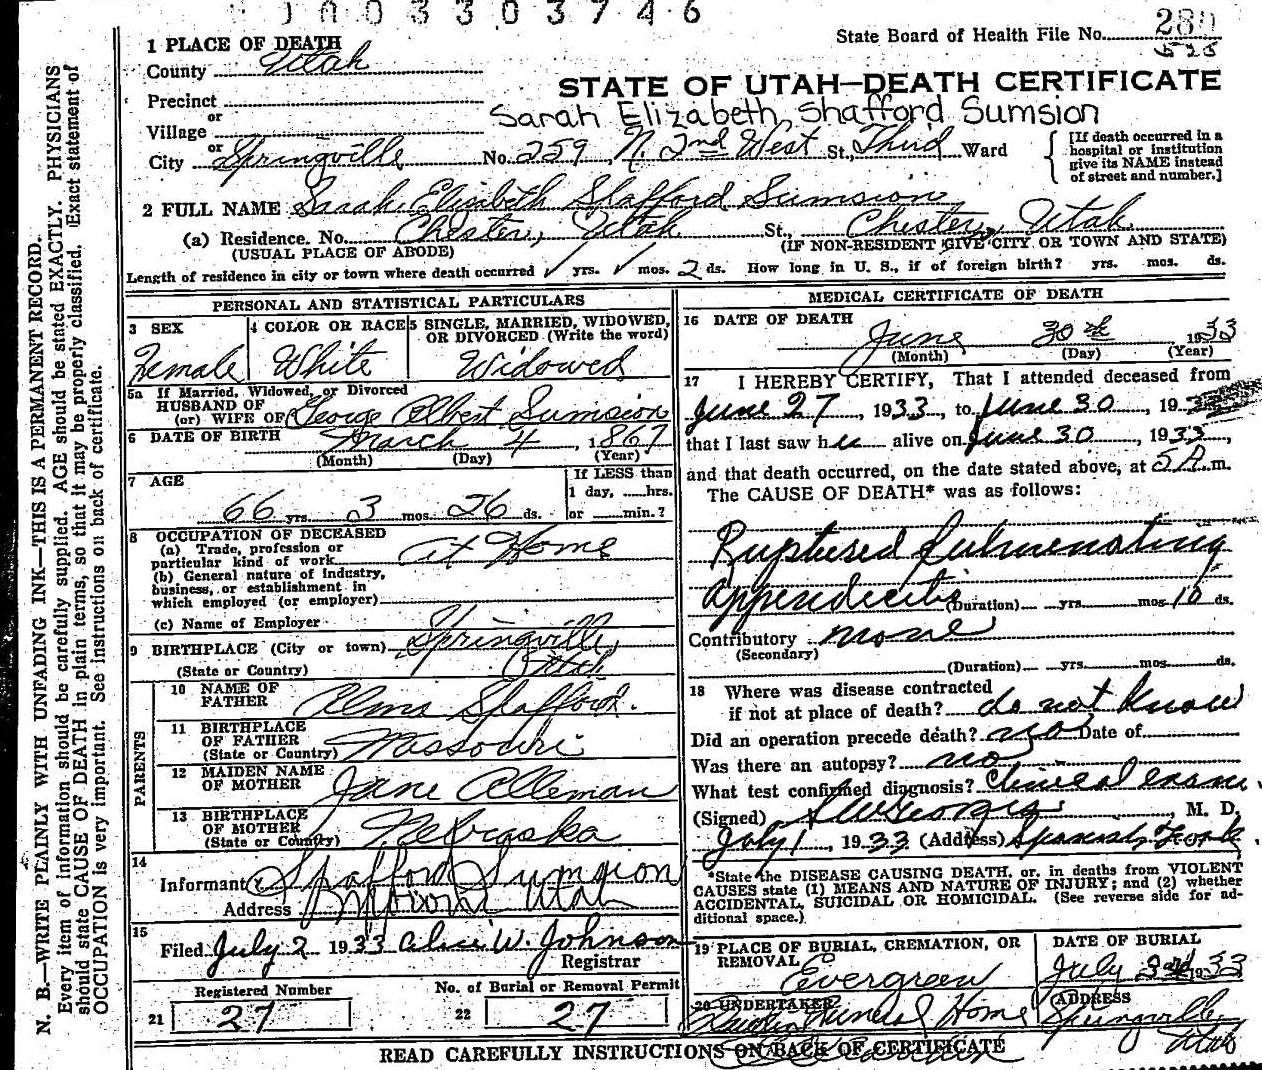 JAO3303746
State Board of Health File No. 280
525
1 PLACE OF DEATH
County Utah
STATE OF UTAH—DEATH CERTIFICATE
Precinct
or
Sarah Elizabeth Shafford Sumsion
Village
or
City Springville No. 259 N. 2nd West St., Third Ward
[If death occurred in a hospital or institution give its NAME instead of street and number.]
2 FULL NAME Sarah Elizabeth Spafford Sumsion
(a) Residence. No. Chester, Utah St., Chester, Utah
(USUAL PLACE OF ABODE) (IF NON-RESIDENT GIVE CITY OR TOWN AND STATE)
Length of residence in city or town where death occurred yrs. mos. 2 ds. How long in U. S., if of foreign birth? yrs. mos. ds.
PERSONAL AND STATISTICAL PARTICULARS
3 SEX
Female
4 COLOR OR RACE
White
5 SINGLE, MARRIED, WIDOWED, OR DIVORCED (Write the word)
Widowed
5a If Married, Widowed, or Divorced
HUSBAND OF
(or) WIFE OF George Albert Sumsion
6 DATE OF BIRTH March 4, 1867
(Month) (Day) (Year)
7 AGE
66 yrs. 3 mos. 26 ds.
If LESS than
1 day, hrs.
or min.?
8 OCCUPATION OF DECEASED
(a) Trade, profession or
particular kind of work At Home
(b) General nature of industry,
business, or establishment in
which employed (or employer)
(c) Name of Employer
9 BIRTHPLACE (City or town) Springville,
(State or Country) Utah
PARENTS
10 NAME OF FATHER Alma Spafford.
11 BIRTHPLACE OF FATHER (State or Country) Missouri
12 MAIDEN NAME OF MOTHER Jane Alleman
13 BIRTHPLACE OF MOTHER (State or Country) Nebraska
14
Informant Spafford Sumsion
Address Utah
15
Filed July 2 1933 Alice W. Johnson
Registrar
Registered Number
21 27
No. of Burial or Removal Permit
22 27
MEDICAL CERTIFICATE OF DEATH
16 DATE OF DEATH
June 30th 1933
(Month) (Day) (Year)
17 I HEREBY CERTIFY, That I attended deceased from
June 27, 1933, to June 30, 193
that I last saw her alive on June 30, 1933,
and that death occurred, on the date stated above, at 5 A. m.
The CAUSE OF DEATH* was as follows:
Ruptured fulminating
appendicitis (Duration) yrs. mos. 10 ds.
Contributory none
(Secondary)
(Duration) yrs. mos. ds.
18 Where was disease contracted
if not at place of death? do not know
Did an operation precede death? no Date of
Was there an autopsy? no
What test confirmed diagnosis? Clinical exam.
(Signed) M. D.
July 1, 1933 (Address) Spanish Fork.
*State the DISEASE CAUSING DEATH, or, in deaths from VIOLENT
CAUSES state (1) MEANS AND NATURE OF INJURY; and (2) whether
ACCIDENTAL, SUICIDAL OR HOMICIDAL. (See reverse side for additional space.)
19 PLACE OF BURIAL, CREMATION, OR REMOVAL
Evergreen
DATE OF BURIAL
July 1933
20 UNDERTAKER
Funeral Home
ADDRESS
Springville,
Utah
READ CAREFULLY INSTRUCTIONS ON BACK OF CERTIFICATE
N. B.—WRITE PLAINLY WITH UNFADING INK—THIS IS A PERMANENT RECORD.
Every item of information should be carefully supplied. AGE should be stated EXACTLY. PHYSICIANS
should state CAUSE OF DEATH in plain terms, so that it may be properly classified. Exact statement of
OCCUPATION is very important. See instructions on back of certificate.